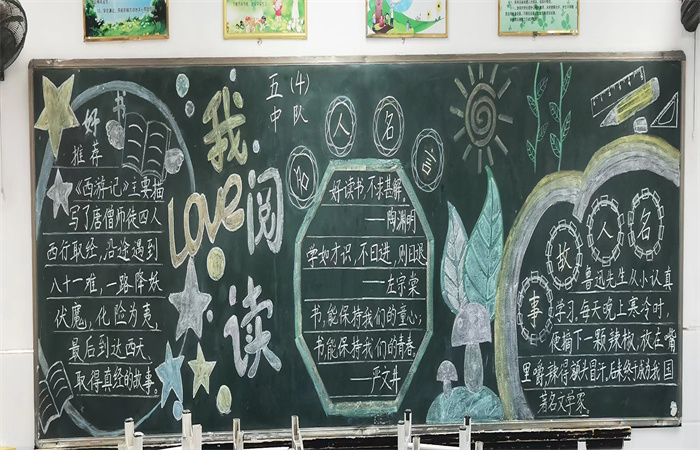 好书
推荐
《西游记》主要描
写了唐僧师徒四人
西行取经，沿途遇到
八十一难，一路降妖
伏魔，化险为夷，
最后到达西天，
取得真经的故事。
五(4)
中队
我Love阅读
名人名言
好读书，不求甚解。
——陶渊明
学如才识，不日进，则日退
——左宗棠
书，能保持我们的童心；
书，能保持我们的青春。
——严文井
名人故事
鲁迅先生从小认真
学习，每天晚上寒冷时，
便摘下一颗辣椒，放在嘴
里嚼，辣得额头冒汗，后来终于成为我国
著名文学家。